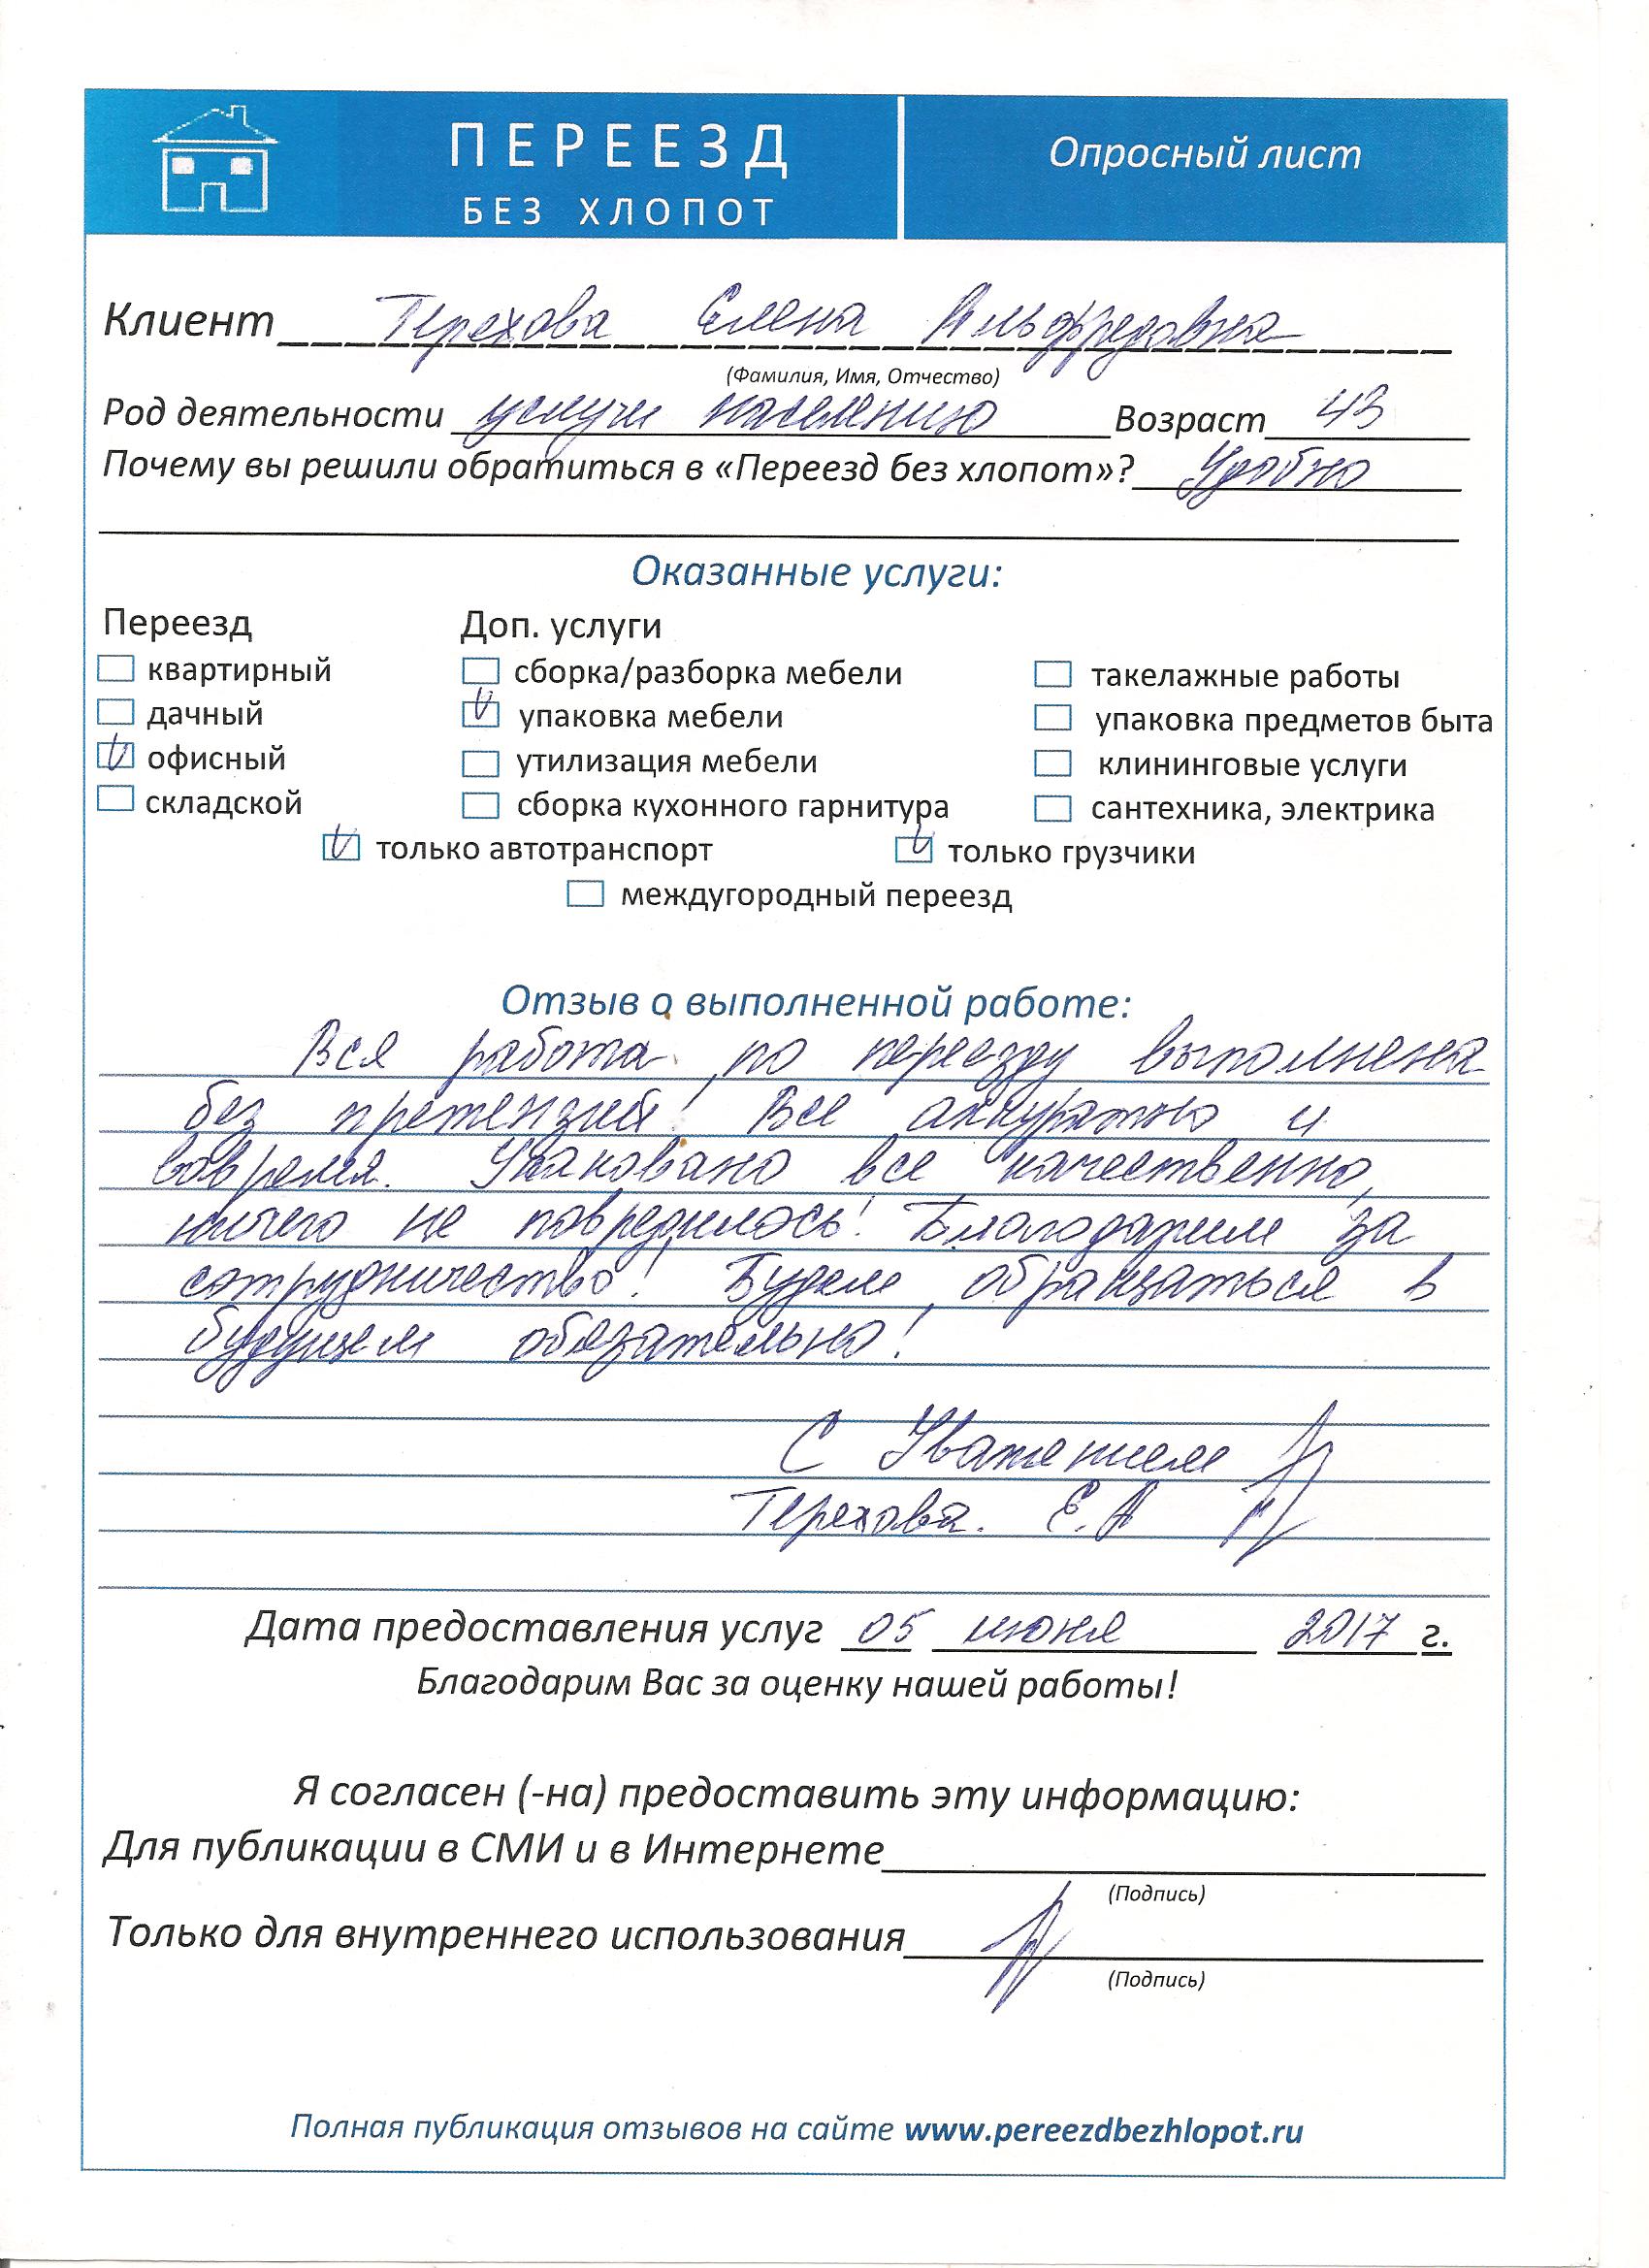 ПЕРЕЕЗД
БЕЗ ХЛОПОТ
Опросный лист
Клиент Терехова Елена Альфредовна
(Фамилия, Имя, Отчество)
Род деятельности услуги населению Возраст 43
Почему вы решили обратиться в «Переезд без хлопот»? Удобно
Оказанные услуги:
Переезд Доп. услуги
квартирный сборка/разборка мебели такелажные работы
дачный упаковка мебели упаковка предметов быта
офисный утилизация мебели клининговые услуги
складской сборка кухонного гарнитура сантехника, электрика
только автотранспорт только грузчики
междугородный переезд
Отзыв о выполненной работе:
Вся работа по переезду выполнена
без претензий! Все аккуратно и
вовремя. Упаковано все качественно,
ничего не повредилось! Благодарим за
сотрудничество! Будем обращаться в
будущем обязательно!
С Уважением
Терехова. Е.А
Дата предоставления услуг 05 июня 2017 г.
Благодарим Вас за оценку нашей работы!
Я согласен (-на) предоставить эту информацию:
Для публикации в СМИ и в Интернете
(Подпись)
Только для внутреннего использования
(Подпись)
Полная публикация отзывов на сайте www.pereezdbezhlopot.ru